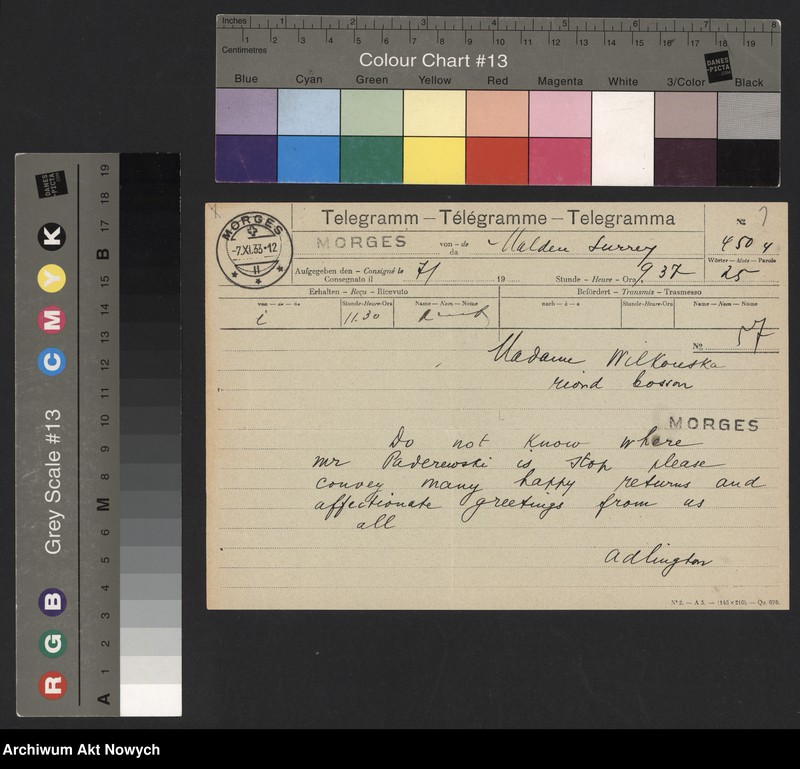 Inches 1 2 3 4 5 6 7 8
1 2 3 4 5 6 7 8 9 10 11 12 13 14 15 16 17 18 19
Centimetres
Colour Chart #13
DANES
PICTA
.COM
Blue Cyan Green Yellow Red Magenta White 3/Color Black
Grey Scale #13
R G B C M Y K
DANES
PICTA
.COM
A 1 2 3 4 5 6 M 8 9 10 11 12 13 14 15 B 17 18 19
Telegramm – Télégramme – Telegramma
MORGES
-7.XI.33-12
II
MORGES
von – de
da
Malden Surrey
№
4504
Wörter – Mots – Parole
25
Aufgegeben den – Consigné le
Consegnato il
7/
19
Stunde – Heure – Ora
9 37
Erhalten – Reçu – Ricevuto
Befördert – Transmis – Trasmesso
von – de – da
Stunde-Heure-Ora
Name – Nom – Nome
nach – à – a
Stunde-Heure-Ora
Name – Nom – Nome
11.30
№
57
Madame Wilkonska
riond bosson
MORGES
Do not know where
mr Paderewski is stop please
convey many happy returns and
affectionate greetings from us
all
Adlington
Archiwum Akt Nowych